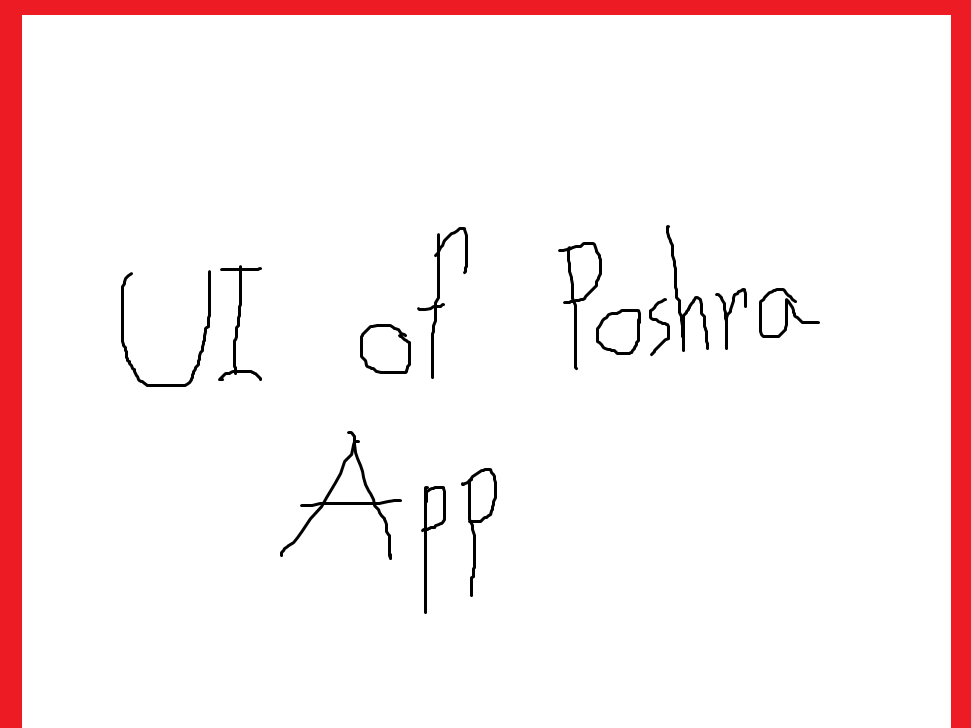 UI of Poshra
App